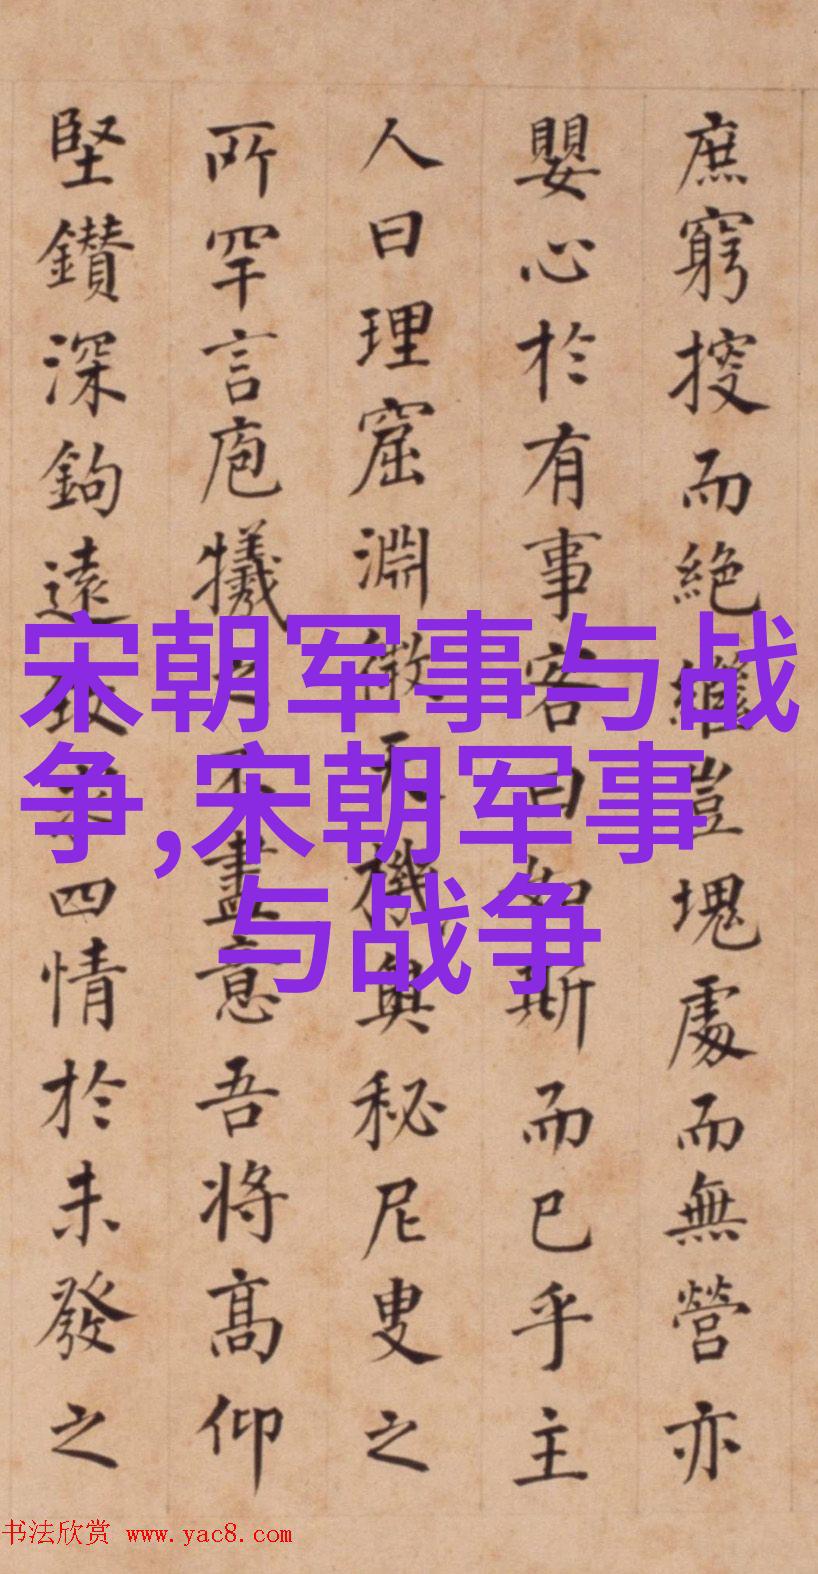 庶窮搜而絶繼豈塊處而無營亦
嬰心於有事客曰如斯而已乎主
人曰理窟淵微天機奥秘尼叟之
所罕言庖犧之不盡意吾將高仰
堅鑽深鉤遠致四情於未發之
宋朝军事与战
争,宋朝军事
与战争
书法欣赏 www.yac8.com